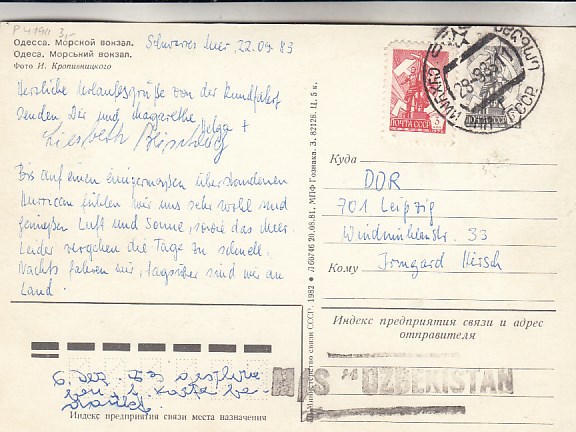 P 4 1911 3,-
Одесса. Морской вокзал.
Одеса. Морський вокзал.
Фото И. Кропивницкого
Schwarzes Meer, 22.09.83
Herzliche Urlaubsgrüße von der Rundfahrt
senden Dir und Margarethe
Helga +
Liesbeth
Bis auf einen einigermaßen überstandenen
Hurrican fühlen wir uns sehr wohl und
genießen Luft und Sonne, sowie das Meer.
Leider vergehen die Tage zu schnell.
Nachts fahren wir, tagsüber sind wir an
Land.
ПОЧТА СССР
5
СССР
Куда
DDR
701 Leipzig
Windmühlenstr. 33
Кому
Irmgard Hirsch
Л 60746 20.08.81. МПФ Гознака. З. 82128. Ц. 5 к.
Министерство связи СССР. 1982
Индекс предприятия связи и адрес
отправителя
M/S UZBEKISTAN
6. Dez.
Индекс предприятия связи места назначения